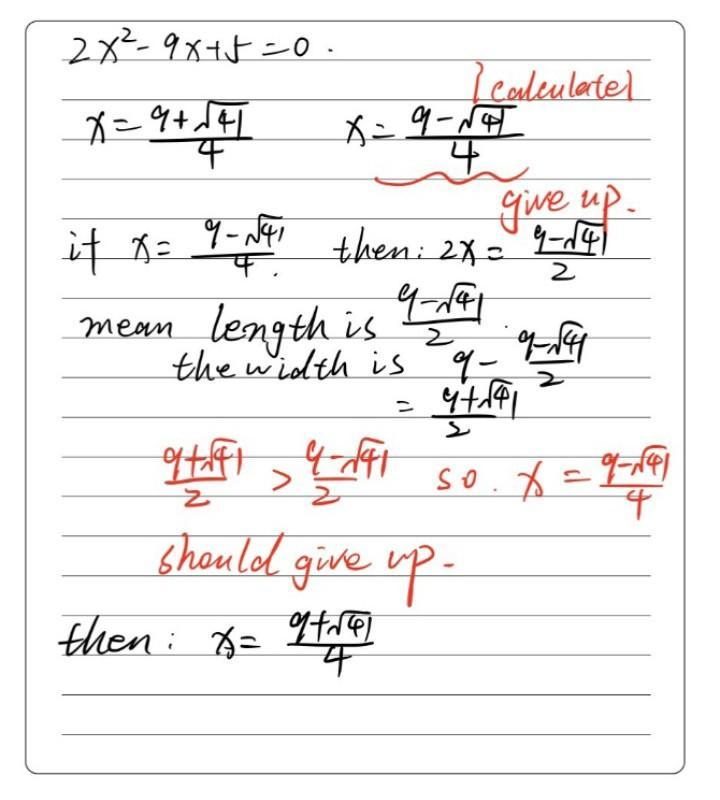 2x² - 9x + 5 = 0.
[calculate]
x = (9 + √41)/4    x = (9 - √41)/4
give up.
if x = (9 - √41)/4.  then: 2x = (9 - √41)/2
mean length is (9 - √41)/2.
the width is 9 - (9 - √41)/2
= (9 + √41)/2
(9 + √41)/2 > (9 - √41)/2  so. x = (9 - √41)/4
should give up.
then: x = (9 + √41)/4